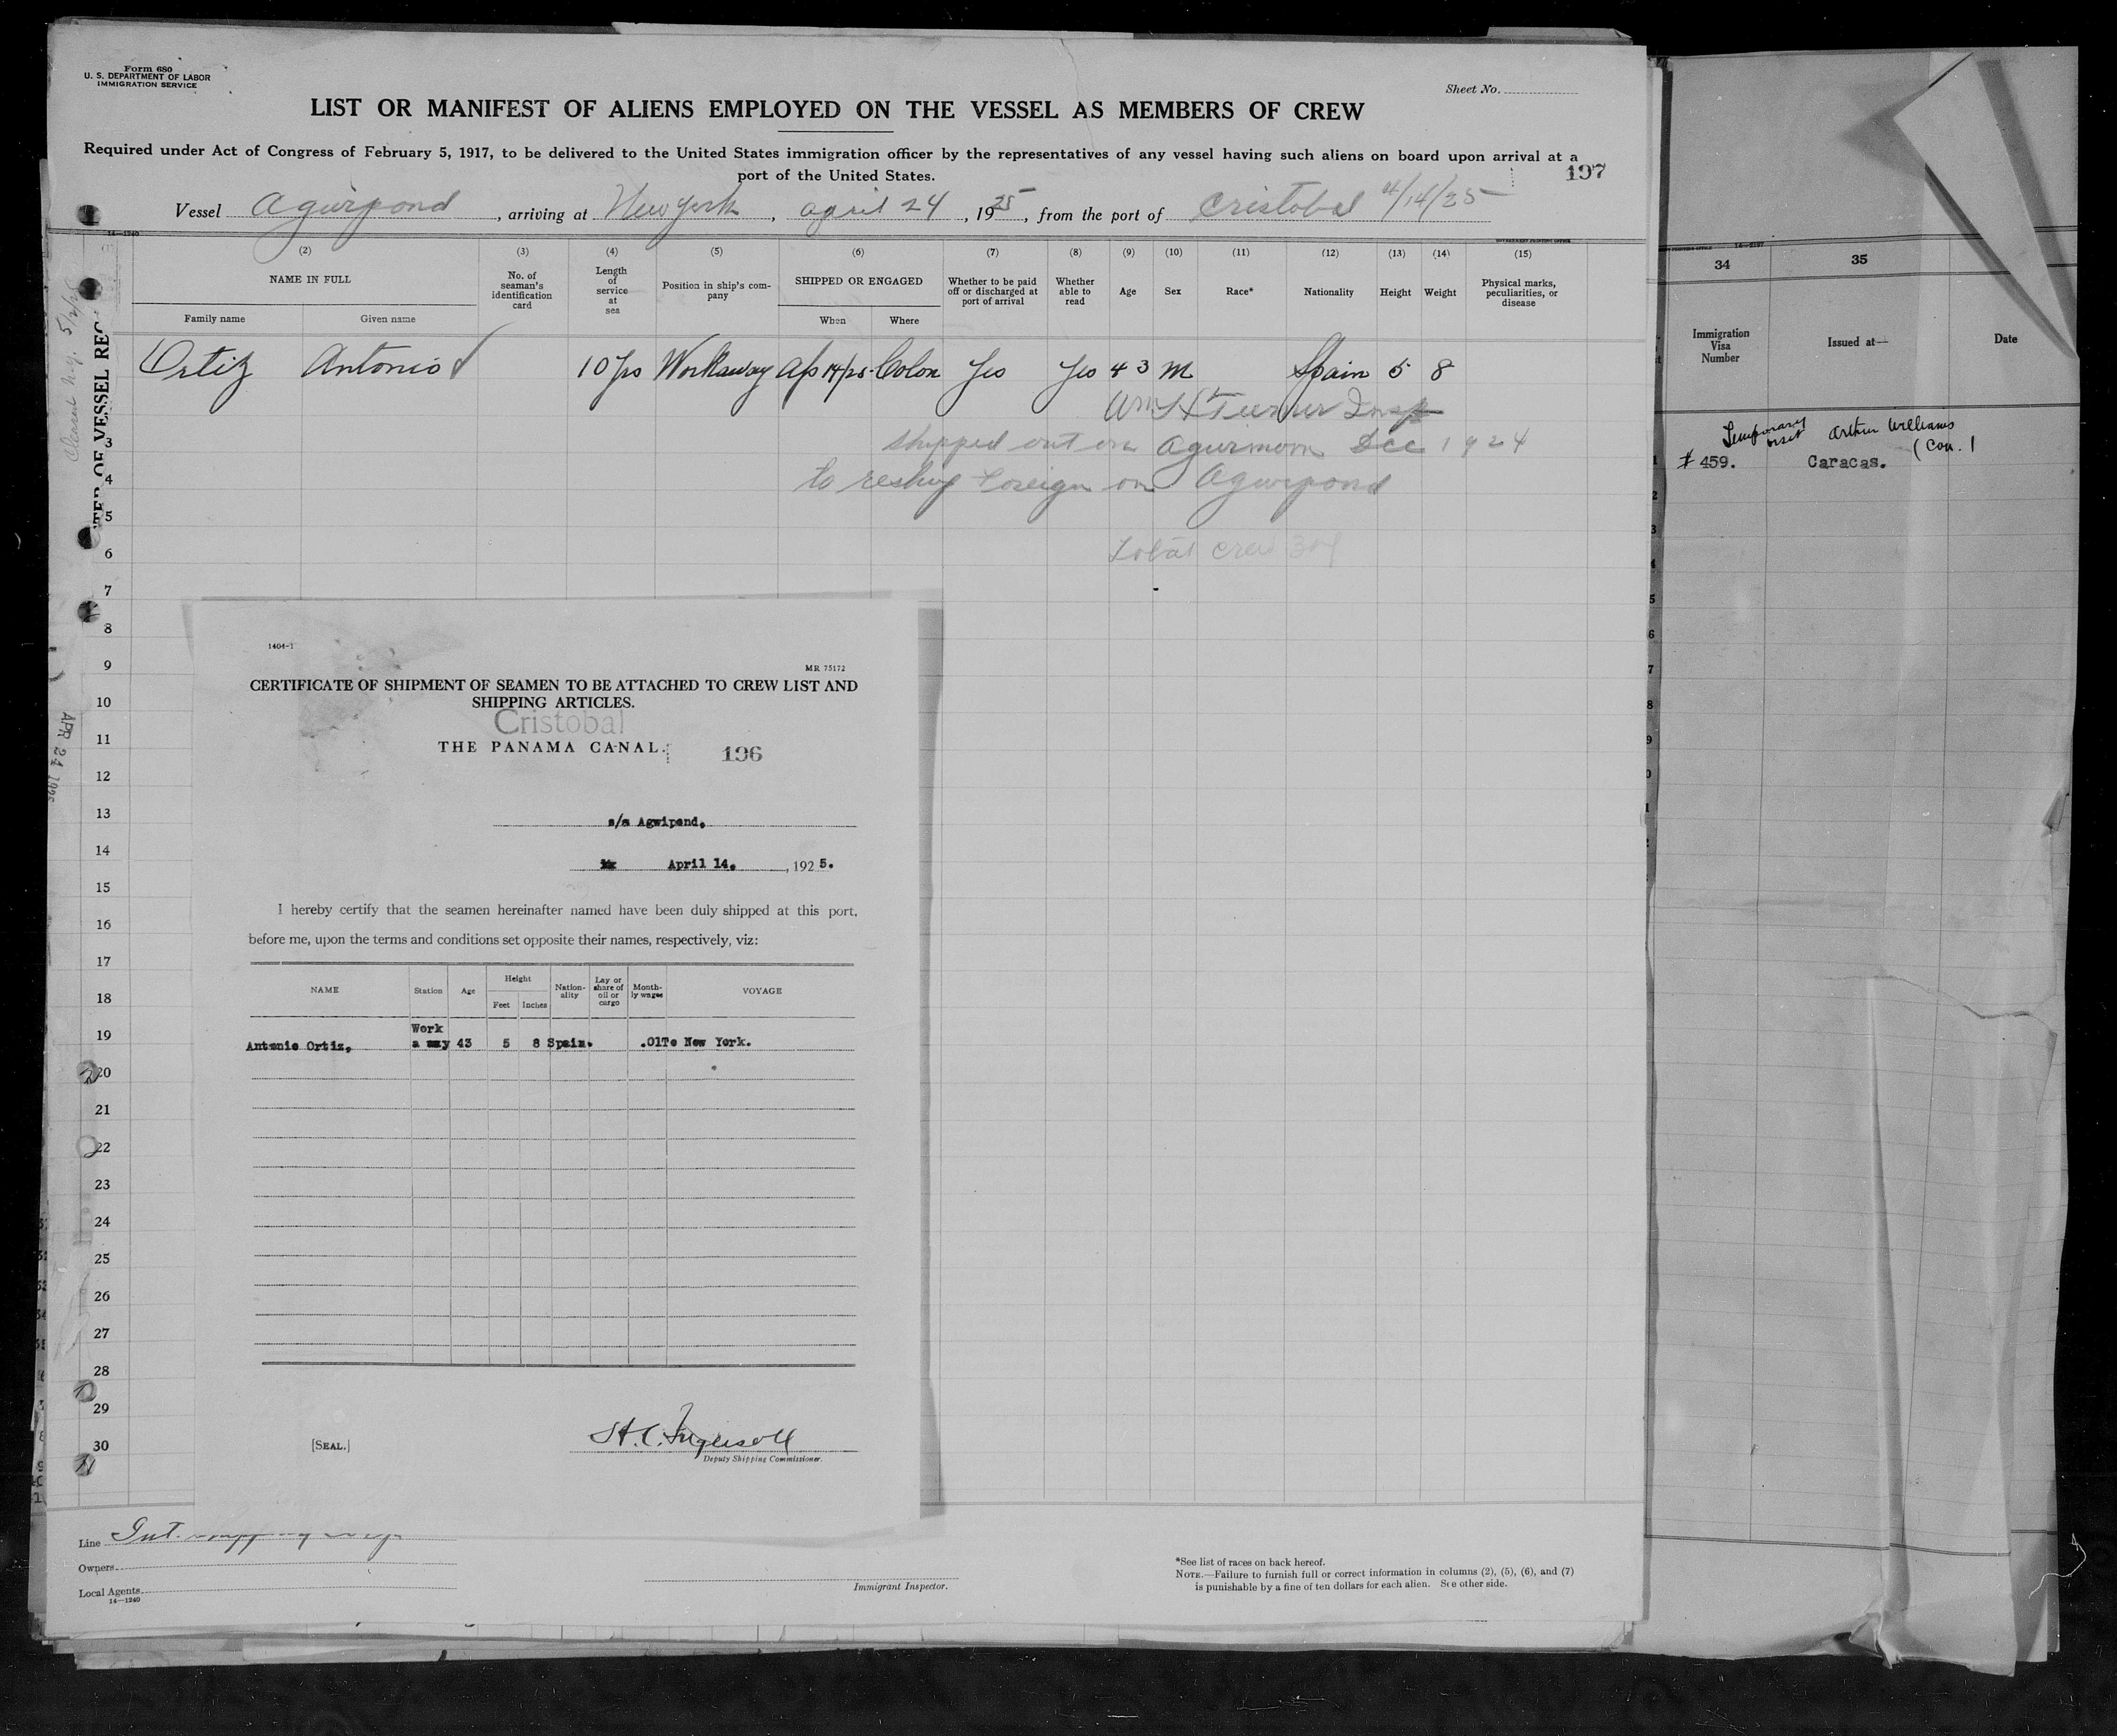 Form 680
U. S. DEPARTMENT OF LABOR
IMMIGRATION SERVICE
Sheet No.
LIST OR MANIFEST OF ALIENS EMPLOYED ON THE VESSEL AS MEMBERS OF CREW
Required under Act of Congress of February 5, 1917, to be delivered to the United States immigration officer by the representatives of any vessel having such aliens on board upon arrival at a
port of the United States.
197
Vessel Agwipond, arriving at New York, april 24, 1925, from the port of Cristobal 4/14/25
14—1240
(1) (2) (3) (4) (5) (6) (7) (8) (9) (10) (11) (12) (13) (14) (15)
NAME IN FULL
Family name Given name
No. of seaman's identification card
Length of service at sea
Position in ship's company
SHIPPED OR ENGAGED
When Where
Whether to be paid off or discharged at port of arrival
Whether able to read
Age
Sex
Race*
Nationality
Height
Weight
Physical marks, peculiarities, or disease
Ortiz Antonio 10 yrs Workaway Ap 14/25 Colon Yes Yes 43 M Spain 5 8
Turner Insp
shipped out on Agwimoon Dec 1924
to reship foreign on Agwipond
Total crew
3
4
5
6
7
8
9
10
11
12
13
14
15
16
17
18
19
20
21
22
23
24
25
26
27
28
29
30
APR 24 1925
1404-1
MR 75172
CERTIFICATE OF SHIPMENT OF SEAMEN TO BE ATTACHED TO CREW LIST AND
SHIPPING ARTICLES.
Cristobal
THE PANAMA CANAL.
196
s/s Agwipond,
April 14, 1925.
I hereby certify that the seamen hereinafter named have been duly shipped at this port,
before me, upon the terms and conditions set opposite their names, respectively, viz:
NAME Station Age Height Feet Inches Nationality Lay or share of oil or cargo Monthly wages VOYAGE
Work
Antonio Ortiz, a way 43 5 8 Spain. .01 To New York.
[SEAL.]
H. C. Ingersoll
Deputy Shipping Commissioner.
Line Int.
Owners
Local Agents
14—1240
Immigrant Inspector.
*See list of races on back hereof.
NOTE.—Failure to furnish full or correct information in columns (2), (5), (6), and (7)
is punishable by a fine of ten dollars for each alien. See other side.
34 35
Immigration Visa Number
Issued at—
Date
Temporary Arthur Williams
(Con.)
# 459. Caracas.